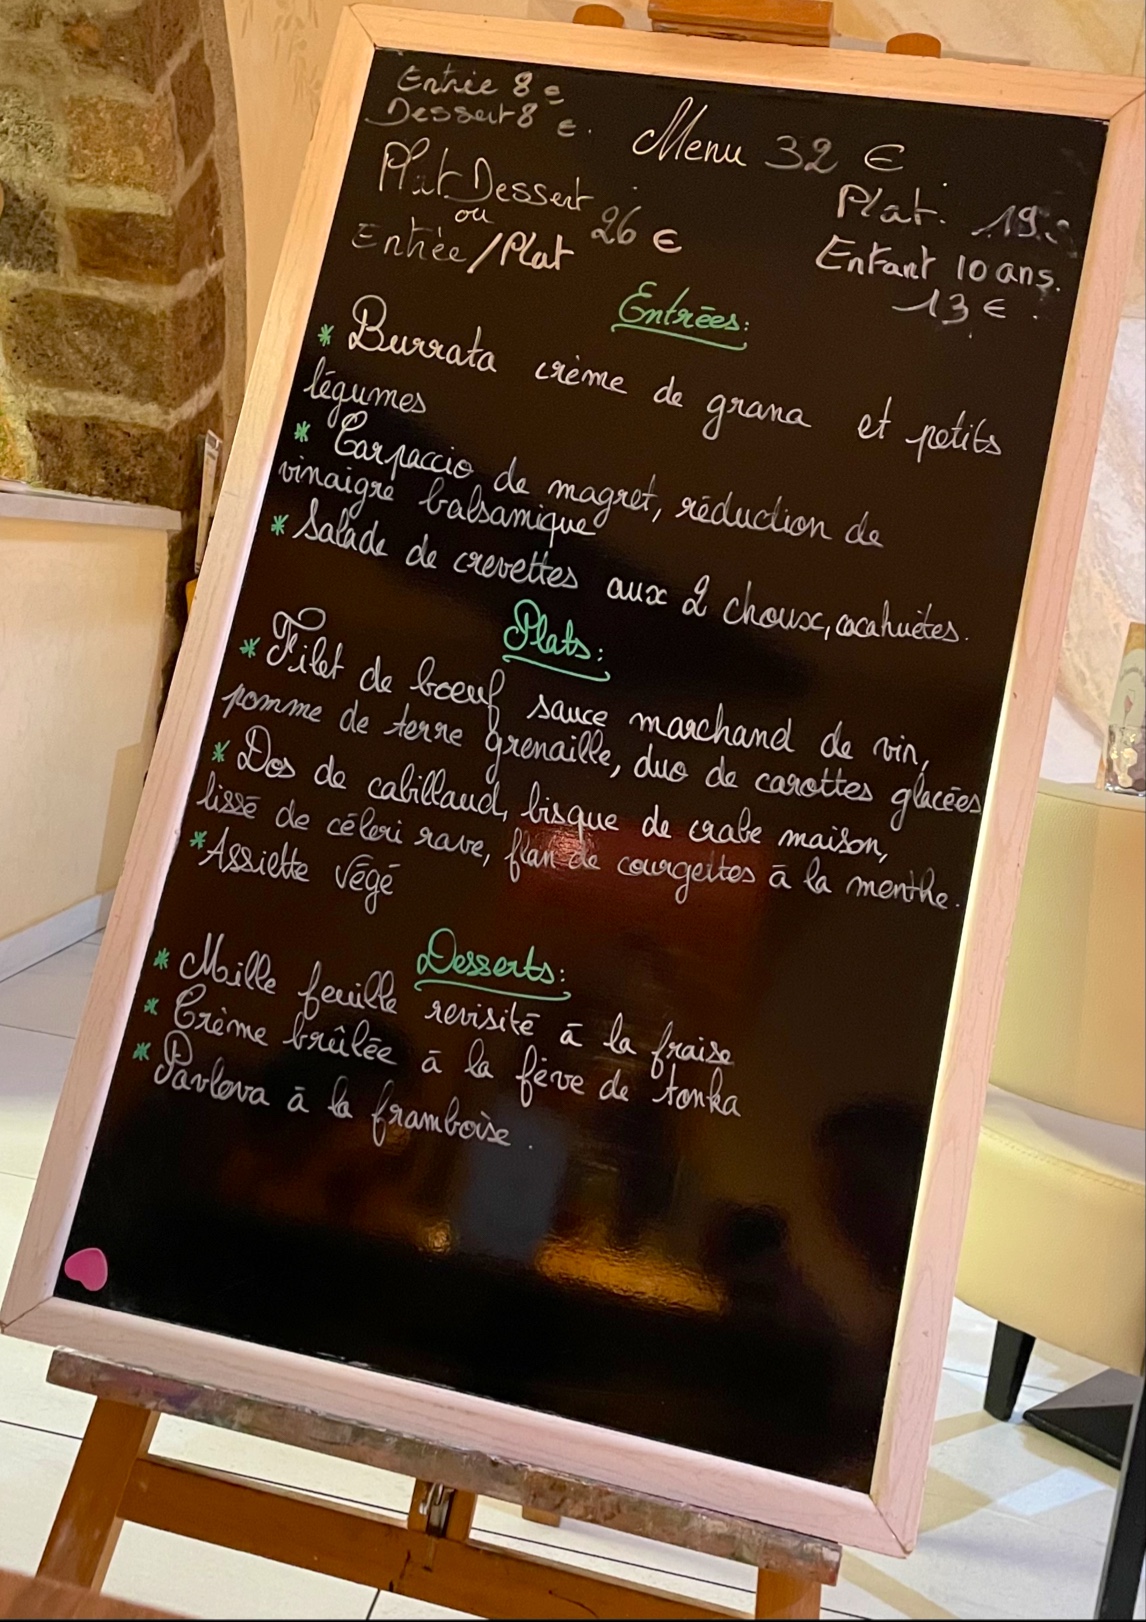 Entrée 8 €
Dessert 8 €.
Menu 32 €
Plat Dessert
ou
26 €
Entrée/Plat
Plat. 19
Enfant 10 ans.
13 € .
Entrées:
* Burrata crème de grana et petits
légumes
* Carpaccio de magret, réduction de
vinaigre balsamique
* Salade de crevettes aux 2 choux, cacahuètes.
Plats:
* Filet de boeuf sauce marchand de vin,
pomme de terre grenaille, duo de carottes glacées
* Dos de cabillaud, bisque de crabe maison,
lissé de céleri rave, flan de courgettes à la menthe.
* Assiette végé
Desserts:
* Mille feuille revisité à la fraise
* Crème brûlée à la fève de tonka
* Pavlova à la framboise.